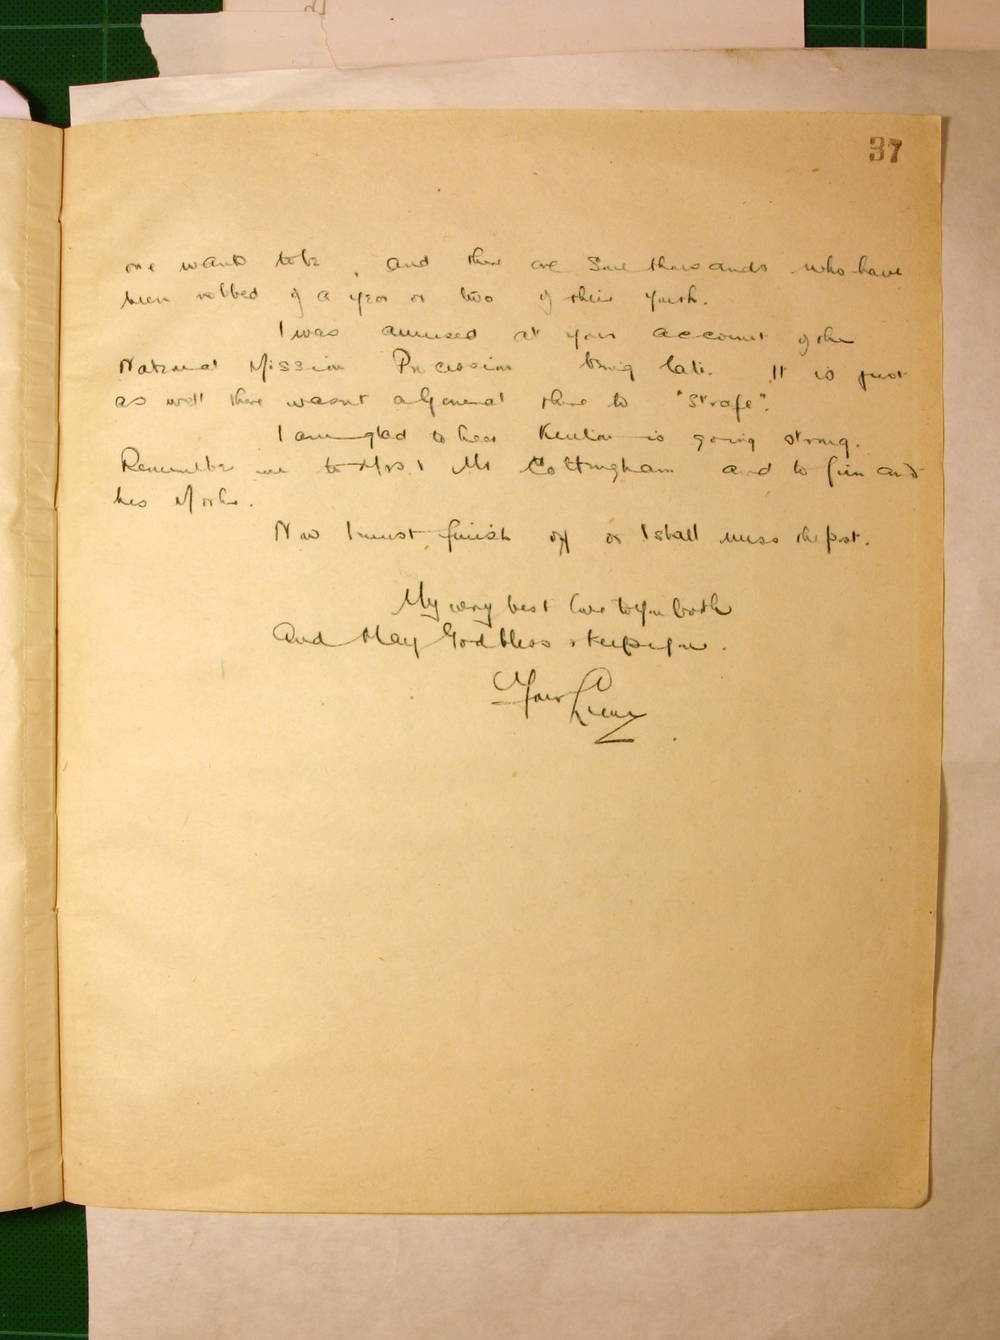 37
one wants to be, and there are some thousands who have
been robbed of a year or two of their youth.
I was amused at your account of the
National Mission Procession being late. It is just
as well there wasnt a General there to "strafe".
I am glad to hear is going strong.
Remember me to Mrs & Mr Cottingham and to Jim and
his Mother.
Now I must finish off or I shall miss the post.
My very best love to you both
And May God bless & keep you.
Your